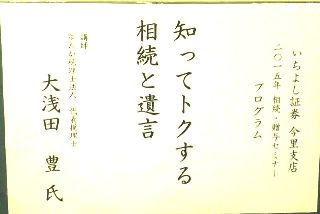 いちよし証券 今里支店
二〇一五年 相続・贈与セミナー
プログラム
知ってトクする
相続と遺言
講師
税理士法人 代表税理士
大浅田 豊 氏